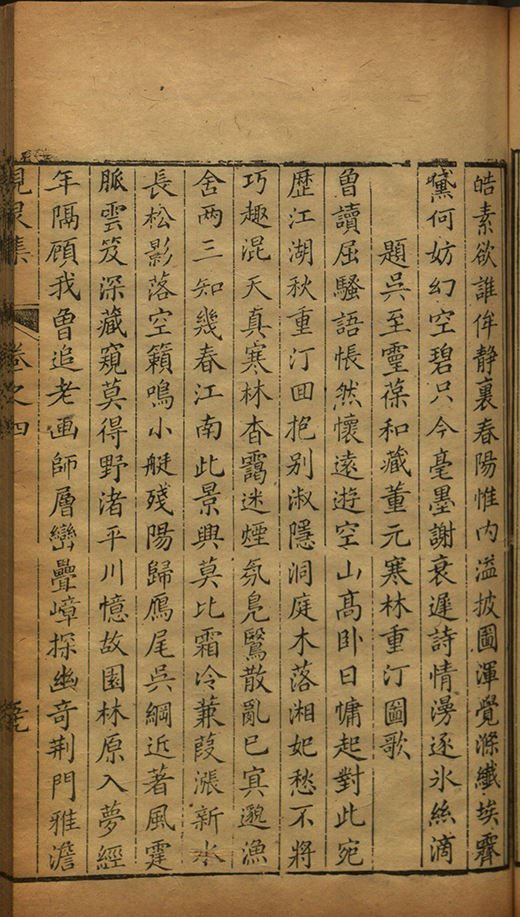 皓素欲誰侔静裏春陽惟内溢披圖渾覺滌纖埃霽
黛何妨幻空碧只今毫墨謝衰遲詩情漫逐氷絲滴
題吳至靈葆和藏董元寒林重汀圖歌
曽讀屈騷語悵然懷遠遊空山髙卧日慵起對此宛
歴江湖秋重汀囬抱别淑隱洞庭木落湘妃愁不將
巧趣混天真寒林杳靄迷煙氛鳬鷖散亂已冥邈漁
舍两三知幾春江南此景興莫比霜冷蒹葭漲新水
長松影落空籟鳴小艇殘陽歸鴈尾吳綱近著風霆
脈雲笈深藏窺莫得野渚平川憶故園林原入夢經
年隔顧我曽追老画師層巒疊嶂探幽竒荆門雅澹
峴泉集
卷之四